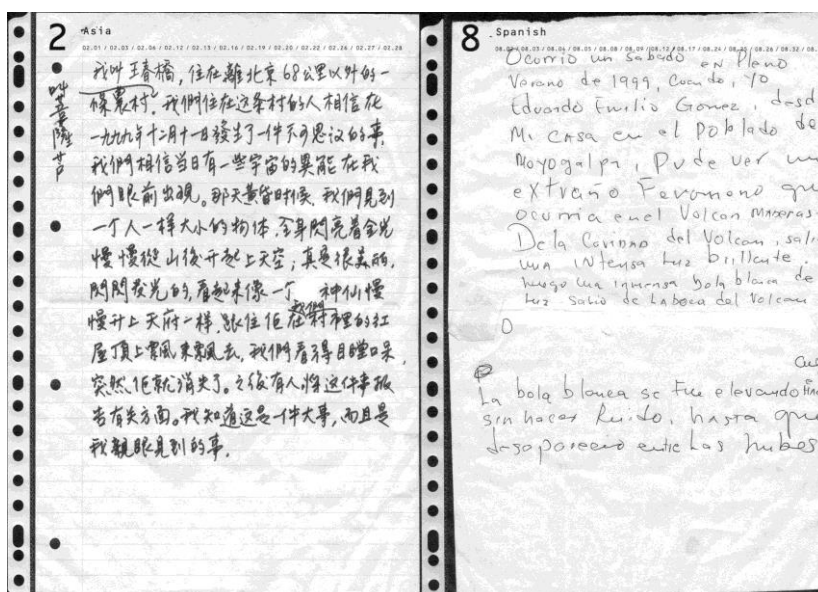 2 Asia
02.01 / 02.03 / 02.06 / 02.12 / 02.13 / 02.16 / 02.19 / 02.20 / 02.22 / 02.26 / 02.27 / 02.28
我叫王春橋，住在離北京68公里以外的一
條農村。我們住在这条村的人相信在
一九九九年十二月十一日發生了一件不可思议的事。
我們相信当日有一些宇宙的異能在我
們眼前出現。那天黄昏时候，我們見到
一个人一样大小的物体，全身閃亮着金光
慢慢從山後升起上天空；真是很美丽，
閃閃发光的，看起来像一个神仙慢
慢升上天府一样，跟住佢在我們村裡的红
屋頂上飄來飄去，我們看得目瞪口呆，
突然佢就消失了。之後有人将这件事报
告有关方面。我知道这是一件大事，而且是
我親眼見到的事。
叫
8 Spanish
Ocurrio un sabado en Pleno
Verano de 1999, Cuando, yo
Eduardo Emilio Gomez, desd
Mi casa en el Poblado de
Moyogalpa, Pude ver un
extraño Fenomeno qu
ocurria en el Volcan Maderas
De la Corona del Volcan, sali
una intensa Luz brillante.
Luego una inmensa bola blanca de
Luz salio de La boca del Volcan
O
La bola blanca se Fue elevando
sin hacer Ruido, hasta que
desaparecio entre Las nubes